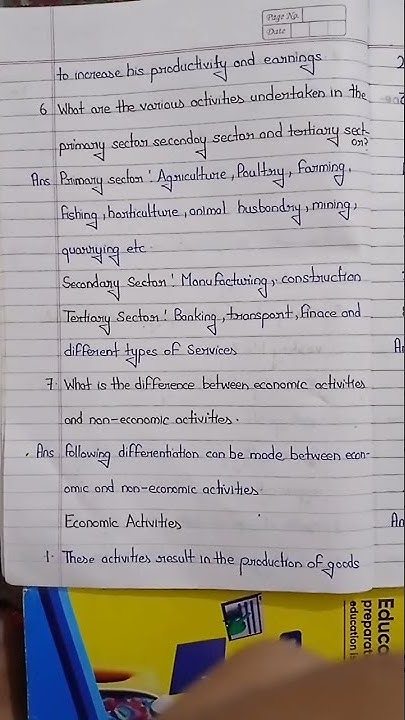 Page No.
Date
to increase his productivity and earnings
6 What are the various activities undertaken in the
primary sector seconday sector and tertiary sect-
or?
Ans Primary sector: Agriculture, Poultry, Farming,
fishing, horticulture, animal husbandry, mining,
quarrying etc.
Secondary Sector: Manufacturing, construction
Tertiary Sector: Banking, transport, finace and
different types of Services
7. What is the difference between economic activities
and non-economic activities.
Ans following differentiation can be made between econ-
omic and non-economic activities.
Economic Activities
1. These activities result in the production of goods
2
An
An
Educa
preparat
education is